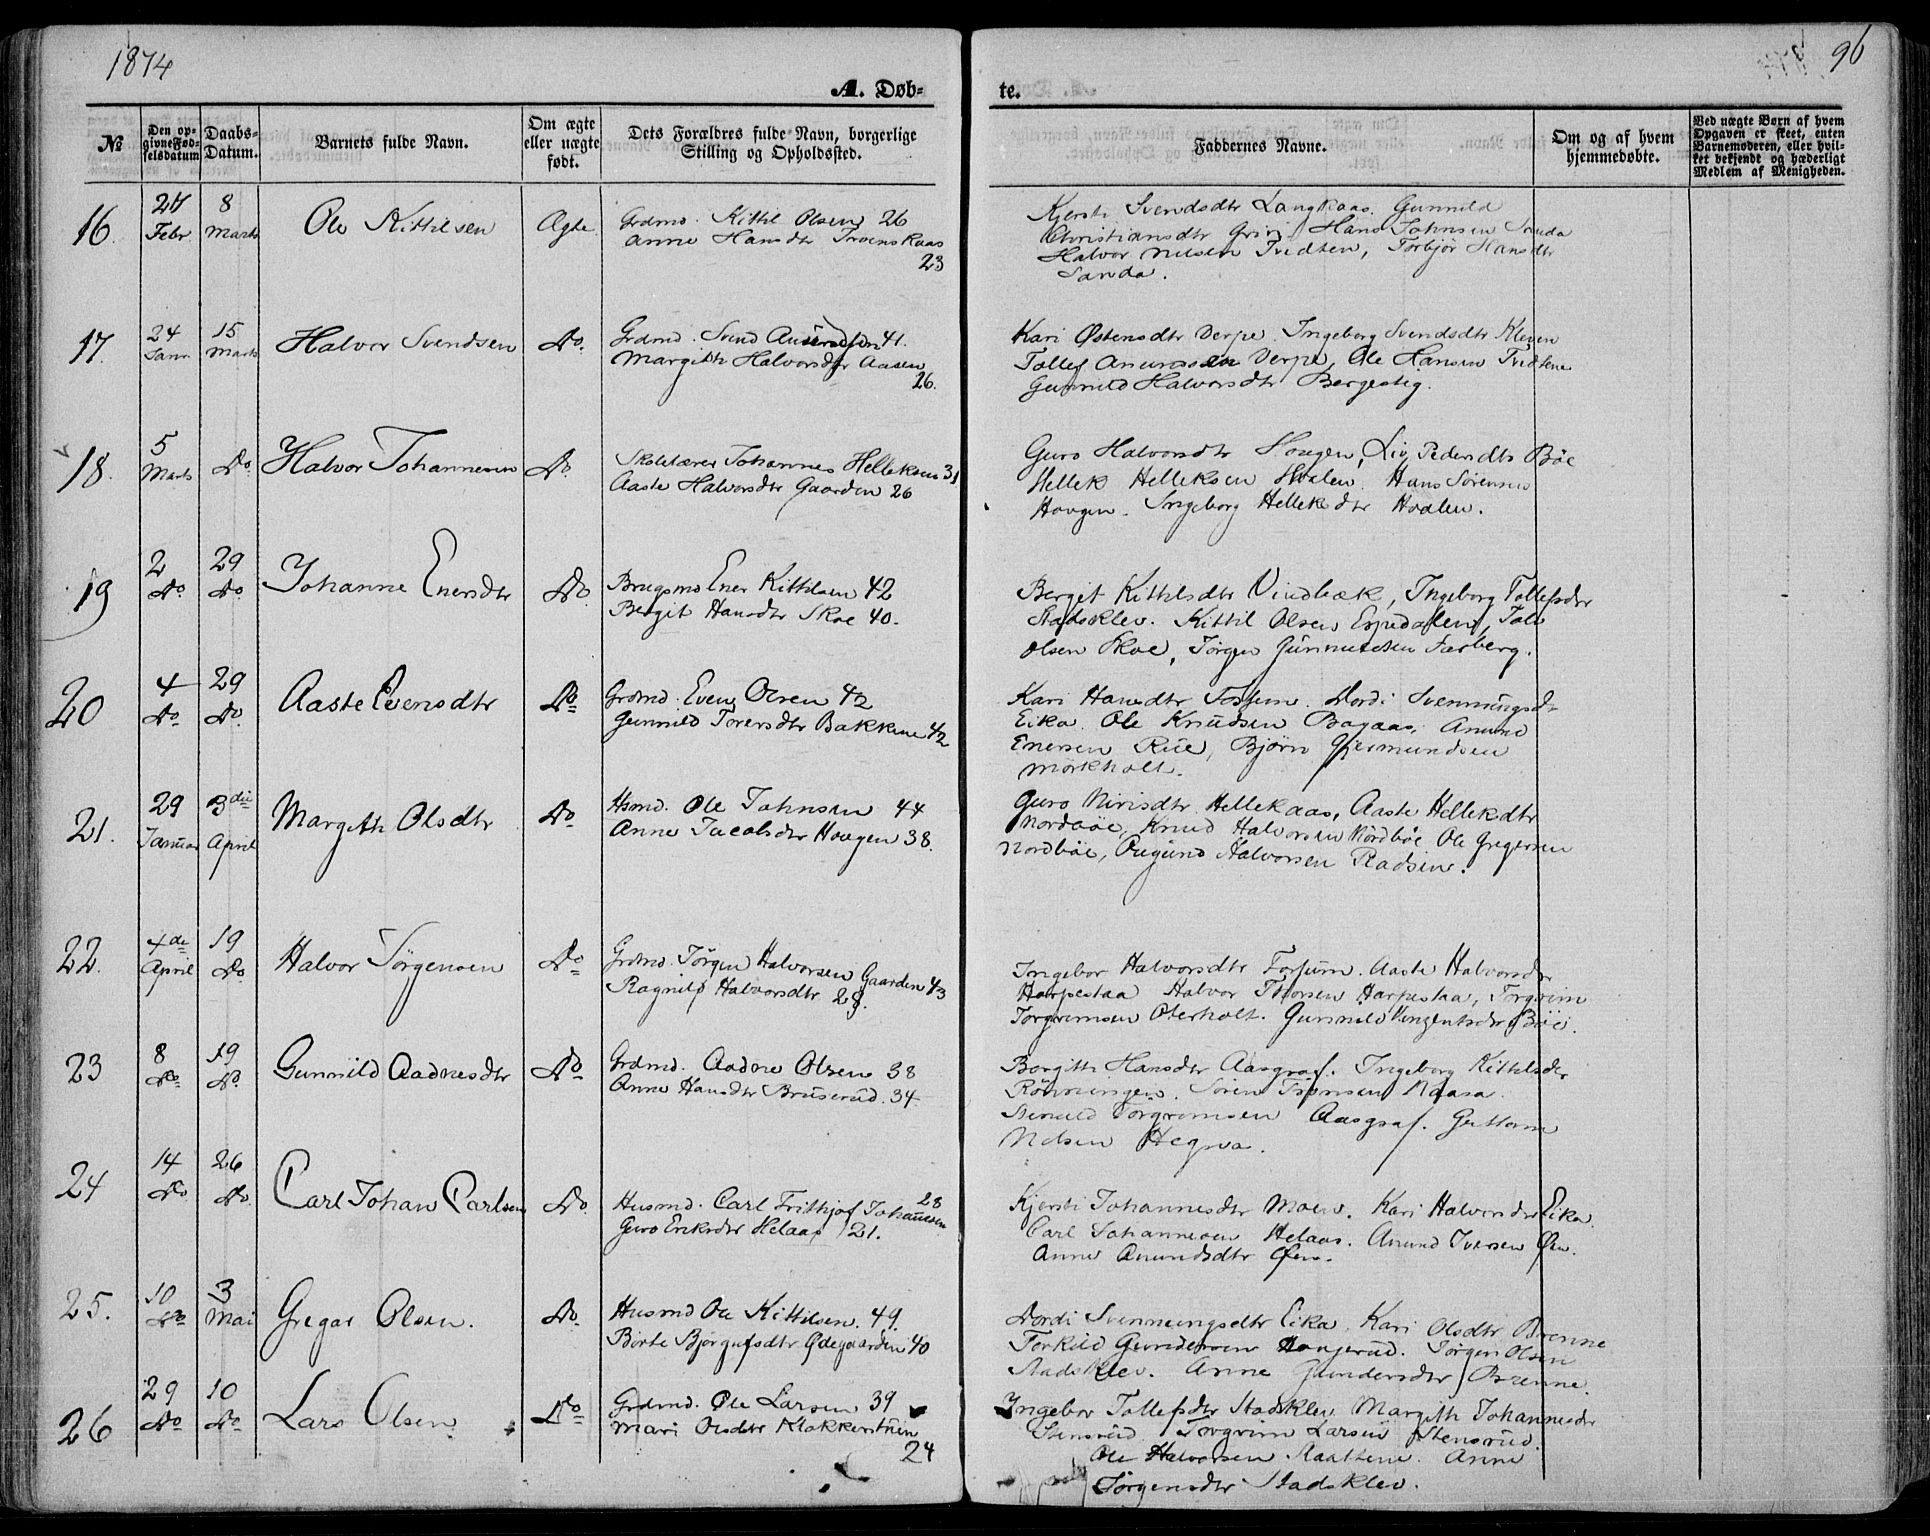 1874
96
A. Døb-
te.
№
Den op-
givne Fød-
selsdatum
Daabs-
Datum.
Barnets fulde Navn.
Om ægte
eller uægte
født.
Dets Forældres fulde Navn, borgerlige
Stilling og Opholdssted.
Faddernes Navne.
Om og af hvem
hjemmedøbte.
Ved uægte Børn af hvem
Opgaven er skeet, enten
Barnemoderen, eller hvil-
ket bekjendt og hæderligt
Medlem af Menigheden.
16.
Febr
8
Marts
Ole Kittilsen
Ægte
Grdmd. Kittil Olsen 26
Anne Hansdtr Troenskaas
23
Kjersti Svendsdtr Langkaas. Gunnild
Christiansdtr Grivi Hans Johnsen Sanda
Halvor Nilsen Tvedten, Torbjør Hansdtr
Sanda.
17.
24
Janr
15
Marts
Halvor Svendsen
Do.
Grdmd. Svend 41.
Margith Halvorsdtr Aasen
26.
Kari Østensdtr Verpe. Ingeborg Svendsdtr Kleven
Tollef Anundsen Verpe, Ole Hansen Tvedtene
Gunnild Halvorsdtr Bergestig.
18.
5
Marts
Do.
Halvor Johannesen
Do
Skolelærer Johannes Helleksen 31
Aaste Halvorsdtr Gaarden 26
Guro Halvorsdtr Hougen, Liv Pedersdtr Bøe
Hellek Helleksen Hvalen. Hans Sørensen
Hougen. Ingeborg Helleksdtr Hvalen.
19
2
Do
29
Do.
Johanne Enersdtr
Do.
Brugsmd Ener Kittilsen 42
Bergit Hansdtr Skoe 40.
Bergit Kittilsdtr Vindbæk, Ingeborg Tollefsdtr
Stadsklev. Kittil Olsen Espedalen,
Olsen Skoe, Jørgen Gunnulsen Farberg.
20
4
Do
29
Do.
Aaste Evensdtr
Do
Grdmd. Even Olsen 42
Gunnild Torersdtr Bakkene 42
Kari Hansdtr Forsum. Dordi Svenningsd-
Eika. Ole Knudsen Bagaas, Anund
Enersen Rue, Bjørn Gjermundsen
Mørkholt.
21.
29
Januar
3die
April
Margith Olsdtr
Do
Hsmd. Ole Johnsen 44
Anne Jacobsdtr Hougen 38.
Guro Nirisdtr Hellekaas, Aaste Hellekdtr
Nordbøe, Knud Halvorsen Nordbøe Ole Gregersen
Nordbøe, Øugund Halvorsen Radsin.
22.
4de
April
19
Do.
Halvor Jørgensen
Do
Grdmd. Jørgen Halvorsen Gaarden 43
Ragnild Halvorsdtr 28.
Ingebor Halvorsdtr Forsum. Aaste Halvorsdtr
Harpestaa Halvor Thorsen Harpestaa, Torgrim
Torgrimsen Oterholt. Gunnild Vinzentsdtr Bøe.
23
8
Do
19
Do.
Gunnild Aadnesdtr
Do
Grdmd. Aadne Olsen 38
Anne Hansdtr Bruserud. 34.
Borgith Hansdtr Aasgraf. Ingeborg Kittilsdtr
Rønningen. Søren
Torgrimsen Aasgraf. Guttorm
Nilsen Hegna.
24
14
Do
26
Do.
Carl Johan Carlsen
Do.
Husmd. Carl Frithjof Johannesen 28
Guro Eriksdtr Helaas 21.
Kjersti Johannesdtr Moen. Kari Halvorsdtr Eika.
Carl Johannesen Helaas. Anund Iversen Øen.
Anne Anundsdtr Øen.
25.
10
Do
3
Mai
Gregar Olsen.
Do.
Husmd Ole Kittilsen. 49.
Børte Bjørgufsdtr Ødegaarden 40
Dordi Svenningsdtr Eika, Kari Olsdtr Brenne
Torkild Gundersen Haugerud. Jørgen Olsen
Stadsklev. Anne Gundersdtr Brenne.
26
29
Do.
10
Do
Lars Olsen
Do
Grdmd. Ole Larsen 39
Mari Olsdtr Klokkerstuen
24
Ingebor Tollefsdtr Stadsklev Margith Johannesdtr
Stensrud. Torgrim Larsen Stensrud.
Ole Halvorsen Anne
Jørgensdtr Stadsklev.